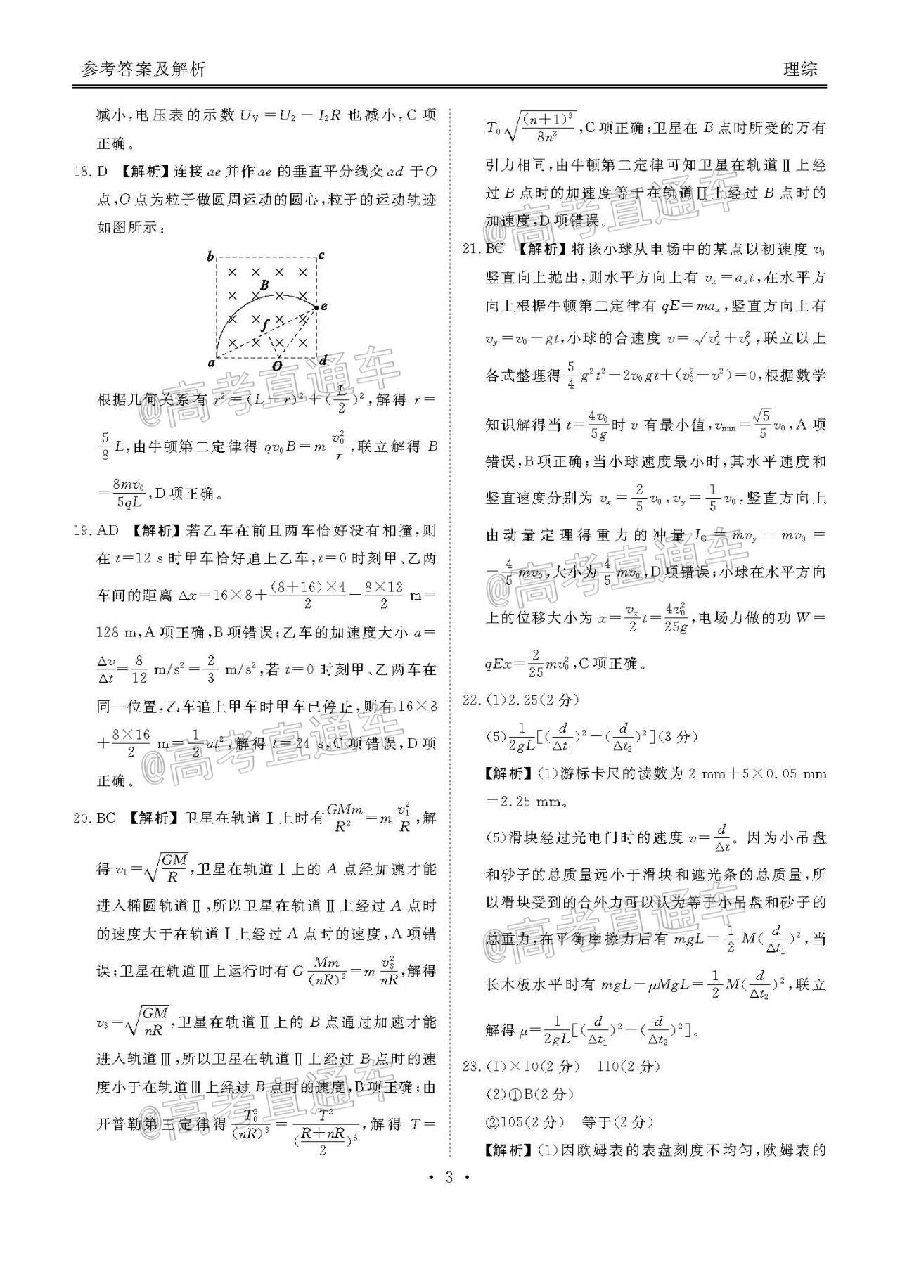 参考答案及解析
理综
减小,电压表的示数 U_V=U₂-I₂R 也减小,C 项
正确。
18. D 【解析】连接 ae 并作 ae 的垂直平分线交 ad 于 O
点,O 点为粒子做圆周运动的圆心,粒子的运动轨迹
如图所示:
b c
B
e
f
a O d
根据几何关系有 r²=(L-r)²+(L/2)²,解得 r=
5/8 L,由牛顿第二定律得 qv₀B=m v₀²/r,联立解得 B
=8mv₀/5qL,D 项正确。
19. AD 【解析】若乙车在前且两车恰好没有相撞,则
在 t=12 s 时甲车恰好追上乙车,t=0 时刻甲、乙两
车间的距离 Δx=16×8+(8+16)×4/2-8×12/2 m=
128 m,A 项正确,B 项错误;乙车的加速度大小 a=
Δv/Δt=8/12 m/s²=2/3 m/s²,若 t=0 时刻甲、乙两车在
同一位置,乙车追上甲车时甲车已停止,则有 16×8
+8×16/2 m=1/2 at²,解得 t=24 s,C 项错误,D 项
正确。
20. BC 【解析】卫星在轨道Ⅰ上时有 GMm/R²=m v₁²/R,解
得 v₁=√(GM/R),卫星在轨道Ⅰ上的 A 点经加速才能
进入椭圆轨道Ⅱ,所以卫星在轨道Ⅱ上经过 A 点时
的速度大于在轨道Ⅰ上经过 A 点时的速度,A 项错
误;卫星在轨道Ⅲ上运行时有 G Mm/(nR)²=m v₃²/nR,解得
v₃=√(GM/nR),卫星在轨道Ⅱ上的 B 点通过加速才能
进入轨道Ⅲ,所以卫星在轨道Ⅱ上经过 B 点时的速
度小于在轨道Ⅲ上经过 B 点时的速度,B 项正确;由
开普勒第三定律得 T₀²/(nR)³=T²/((R+nR)/2)³,解得 T=
T₀√((n+1)³/8n³),C 项正确;卫星在 B 点时所受的万有
引力相同,由牛顿第二定律可知卫星在轨道Ⅱ上经
过 B 点时的加速度等于在轨道Ⅲ上经过 B 点时的
加速度,D 项错误。
21. BC 【解析】将该小球从电场中的某点以初速度 v₀
竖直向上抛出,则水平方向上有 vₓ=aₓt,在水平方
向上根据牛顿第二定律有 qE=maₓ,竖直方向上有
v_y=v₀-gt,小球的合速度 v=√(vₓ²+v_y²),联立以上
各式整理得 5/4 g²t²-2v₀gt+(v₀²-v²)=0,根据数学
知识解得当 t=4v₀/5g 时 v 有最小值,v_min=√5/5 v₀,A 项
错误,B 项正确;当小球速度最小时,其水平速度和
竖直速度分别为 vₓ=2/5 v₀,v_y=1/5 v₀,竖直方向上
由动量定理得重力的冲量 I_G=mv_y-mv₀=
-4/5 mv₀,大小为 4/5 mv₀,D 项错误;小球在水平方向
上的位移大小为 x=vₓ/2 t=4v₀²/25g,电场力做的功 W=
qEx=2/25 mv₀²,C 项正确。
22. (1)2.25(2 分)
(5)1/2gL[(d/Δt₁)²-(d/Δt₂)²](3 分)
【解析】(1)游标卡尺的读数为 2 mm+5×0.05 mm
=2.25 mm。
(5)滑块经过光电门时的速度 v=d/Δt。因为小吊盘
和砂子的总质量远小于滑块和遮光条的总质量,所
以滑块受到的合外力可以认为等于小吊盘和砂子的
总重力,在平衡摩擦力后有 mgL=1/2 M(d/Δt₁)²,当
长木板水平时有 mgL-μMgL=1/2 M(d/Δt₂)²,联立
解得 μ=1/2gL[(d/Δt₁)²-(d/Δt₂)²]。
23. (1)×10(2 分) 110(2 分)
(2)①B(2 分)
②105(2 分) 等于(2 分)
【解析】(1)因欧姆表的表盘刻度不均匀,欧姆表的
· 3 ·
@高考直通车
@高考直通车
@高考直通车
@高考直通车
@高考直通车
@高考直通车
@高考直通车